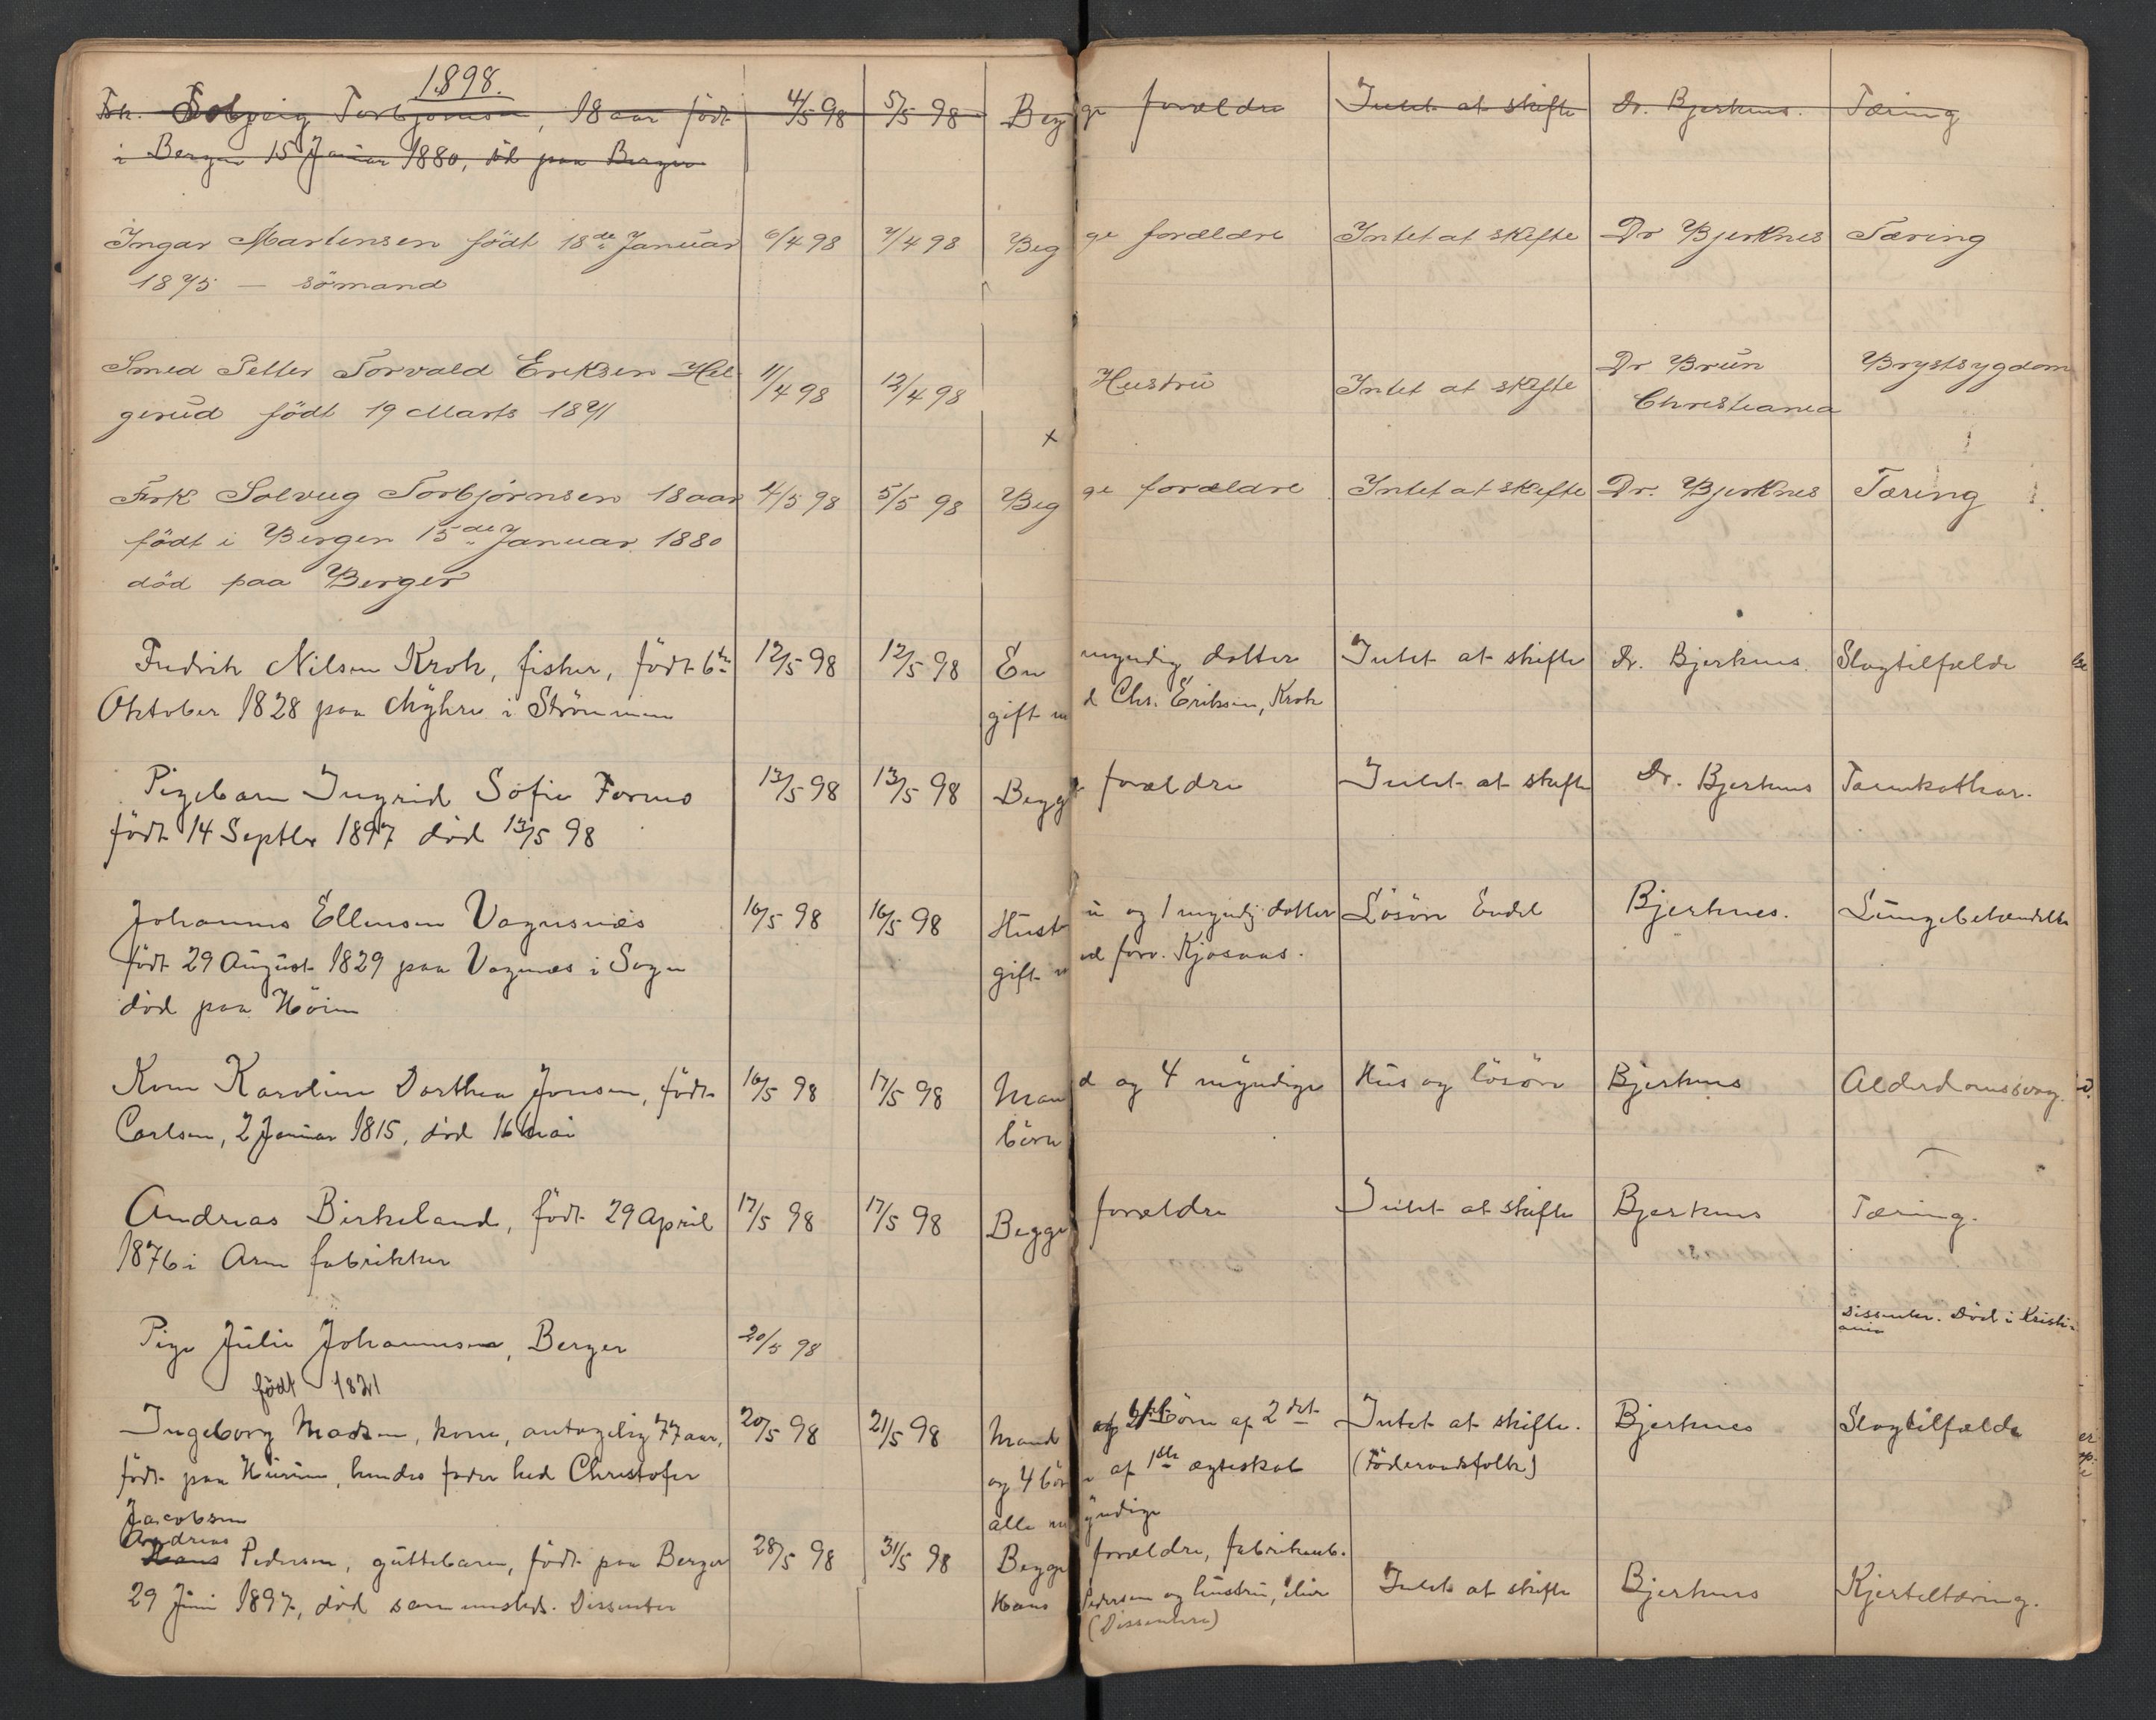 1898.
Frk. Solveig Torbjörnsen, 18 aar födt 4/5 98 5/5 98 Begge forældre Intet at skifte Dr. Bjerknes. Tæring
i Bergen 15 Januar 1880, död paa Berger
Ingar Martensen födt 18de Januar 6/4 98 7/4 98 Begge forældre Intet at skifte Dr Bjerknes Tæring
1875 — sömand
Smed Petter Torvald Eriksen Hel- 11/4 98 12/4 98 Hustru Intet at skifte Dr Brun Brystsygdom
gerud födt 19 Marts 1871 Christiania
x
Frk Solveig Torbjörnsen 18 aar 4/5 98 5/5 98 Begge forældre Intet at skifte Dr. Bjerknes Tæring
födt i Bergen 15de Januar 1880
död paa Berger
Fredrik Nilsen Krok, fisker, födt 6te 12/5 98 12/5 98 En myndig datter Intet at skifte Dr. Bjerknes. Slagtilfælde
Oktober 1828 paa Myhre i Strömmen gift md Chr. Eriksen, Krok
Pigebarn Ingrid Sofie Formo 13/5 98 13/5 98 Begge forældre Intet at skifte Dr. Bjerknes Tarmkathar.
födt 14 Septbr 1897 död 13/5 98
Johannes Ellensen Vagnsnæs 16/5 98 16/5 98 Hustru og 1 myndig datter Lösöre Endel Bjerknes. Lungebetændelse
födt 29 August 1829 paa Vagnnæs i Sogn gift med forv. Kjosaas.
död paa Höien
Kone Karoline Dorthea Jonsen, födt 16/5 98 17/5 98 Mand og 4 myndige Hus og lösöre Bjerknes Alderdomssvag.
Carlsen, 2 Januar 1815, död 16 mai börn
Andreas Birkeland, födt 29 April 17/5 98 17/5 98 Begge forældre Intet at skifte Bjerknes Tæring.
1876 i Arne fabrikker
Dissenter. Död i Kristi-
ania
Pige Julie Johannesen, Berger 20/5 98
födt 1821
Ingeborg Madsen, kone, antagelig 77 aar, 20/5 98 21/5 98 Mand og börn af 2det Intet at skifte. Bjerknes Slagtilfælde
födt paa Hurum, hendes fader hed Christofer og 4 börn af 1ste ægteskab (Föderaadsfolk)
Jacobsen alle myndige
Andreas
Hans Pedersen, guttebarn, födt paa Berger 28/5 98 31/5 98 Begge forældre, fabrikarb. Intet at skifte Bjerknes Kjerteltæring.
29 Juni 1897, död sammesteds. Dissenter Hans Pedersen og hustru,
(Dissentere)